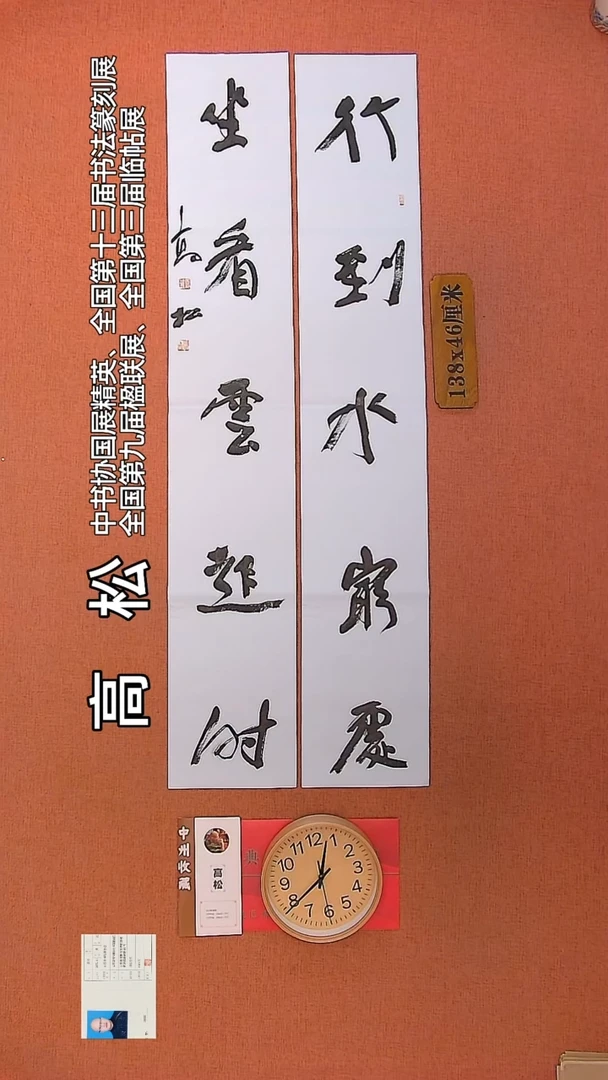 行到水窮處
坐看雲起時
高松
138x46厘米
中书协国展精英、全国第十三届书法篆刻展
全国第九届楹联展、全国第三届临帖展
高 松
高松
典
12 1 2 3 4 5 6 7 8 9 10 11